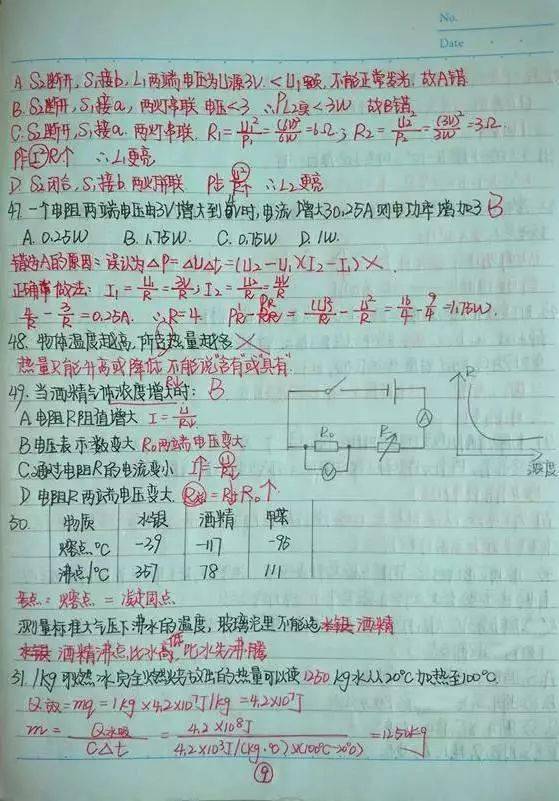 No.
Date
A. S₂断开, S₁接b, L₁两端电压为U源3V. < U₁额, 不能正常发光. 故A错
B. S₂断开, S₁接a, 两灯串联 电压<3 ∴P_L2实<3W 故B错
C. S₂断开, S₁接a. 两灯串联. R₁ = U₁²/P₁ = (6V)²/6W = 6Ω; R₂ = U₂²/P₂ = (3V)²/3W = 3Ω.
P↑=I²R↑ ∴L₁更亮
D. S₂闭合, S₁接b. 两灯并联 P↑= U²/R↓ ∴L₂更亮
47. 一个电阻两端电压由3V增大到4V时, 电流增大3 0.25A 则电功率增加3 B
A. 0.25W B. 1.75W. C. 0.75W D. 1W.
错选A的原因: 误认为△P=△U△I=(U₂-U₁)(I₂-I₁) ×.
正确做法: I₁ = U/R = 3V/R; I₂ = U₂/R = 4V/R
4/R - 3/R = 0.25A. ∴R=4. = 16/4 - 9/4 = 1.75W.
48. 物体温度越高, 所含热量越多 ×
热量只能升高或降低 不能说"含有"或"具有"
49. 当酒精气体浓度增大时: B
A. 电阻R阻值增大 I = U/R↓
B. 电压表示数变大 R₀两端电压变大
C. 通过电阻R的电流变小 I↑ = U/R↓
D. 电阻R两端电压变大 R₀↑
R₀ R A V
R 浓度
50. 物质 水银 酒精 甲苯
熔点℃ -39 -117 -95
沸点/℃ 357 78 111
考点: 熔点 = 凝固点
测量标准大气压下沸水的温度, 玻璃泡里不能选水银 酒精
水银 酒精沸点比水低, 比水先沸腾
51. 1kg可燃冰完全燃烧放出的热量可以使1250kg水从20℃加热至100℃.
Q放=mq = 1kg×4.2×10⁷J/kg = 4.2×10⁷J
m = Q水吸/C△t = 4.2×10⁸J/4.2×10³J/(kg·℃)×(100℃-20℃) = 1250kg
9